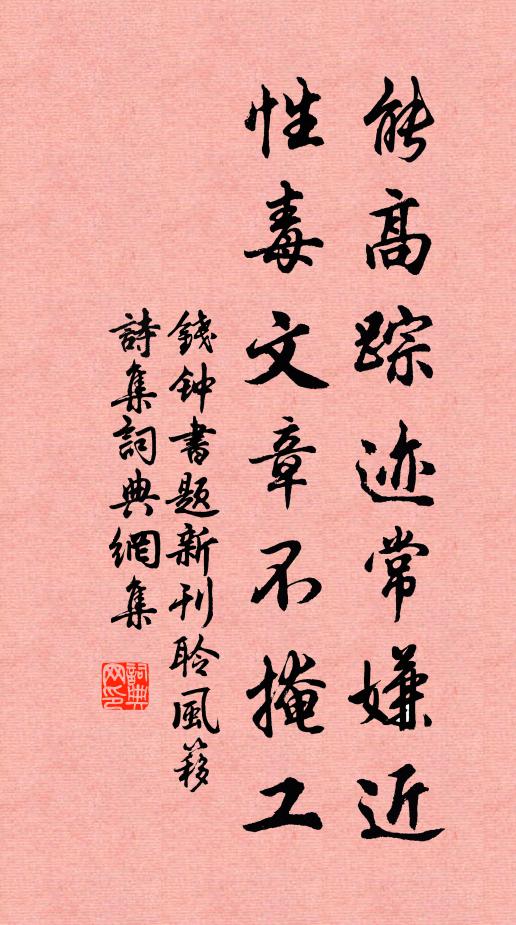 能高踪迹常嫌近
性毒文章不掩工
錢钟書题新刊聆風簃
詩集詞典網集
詞典网印